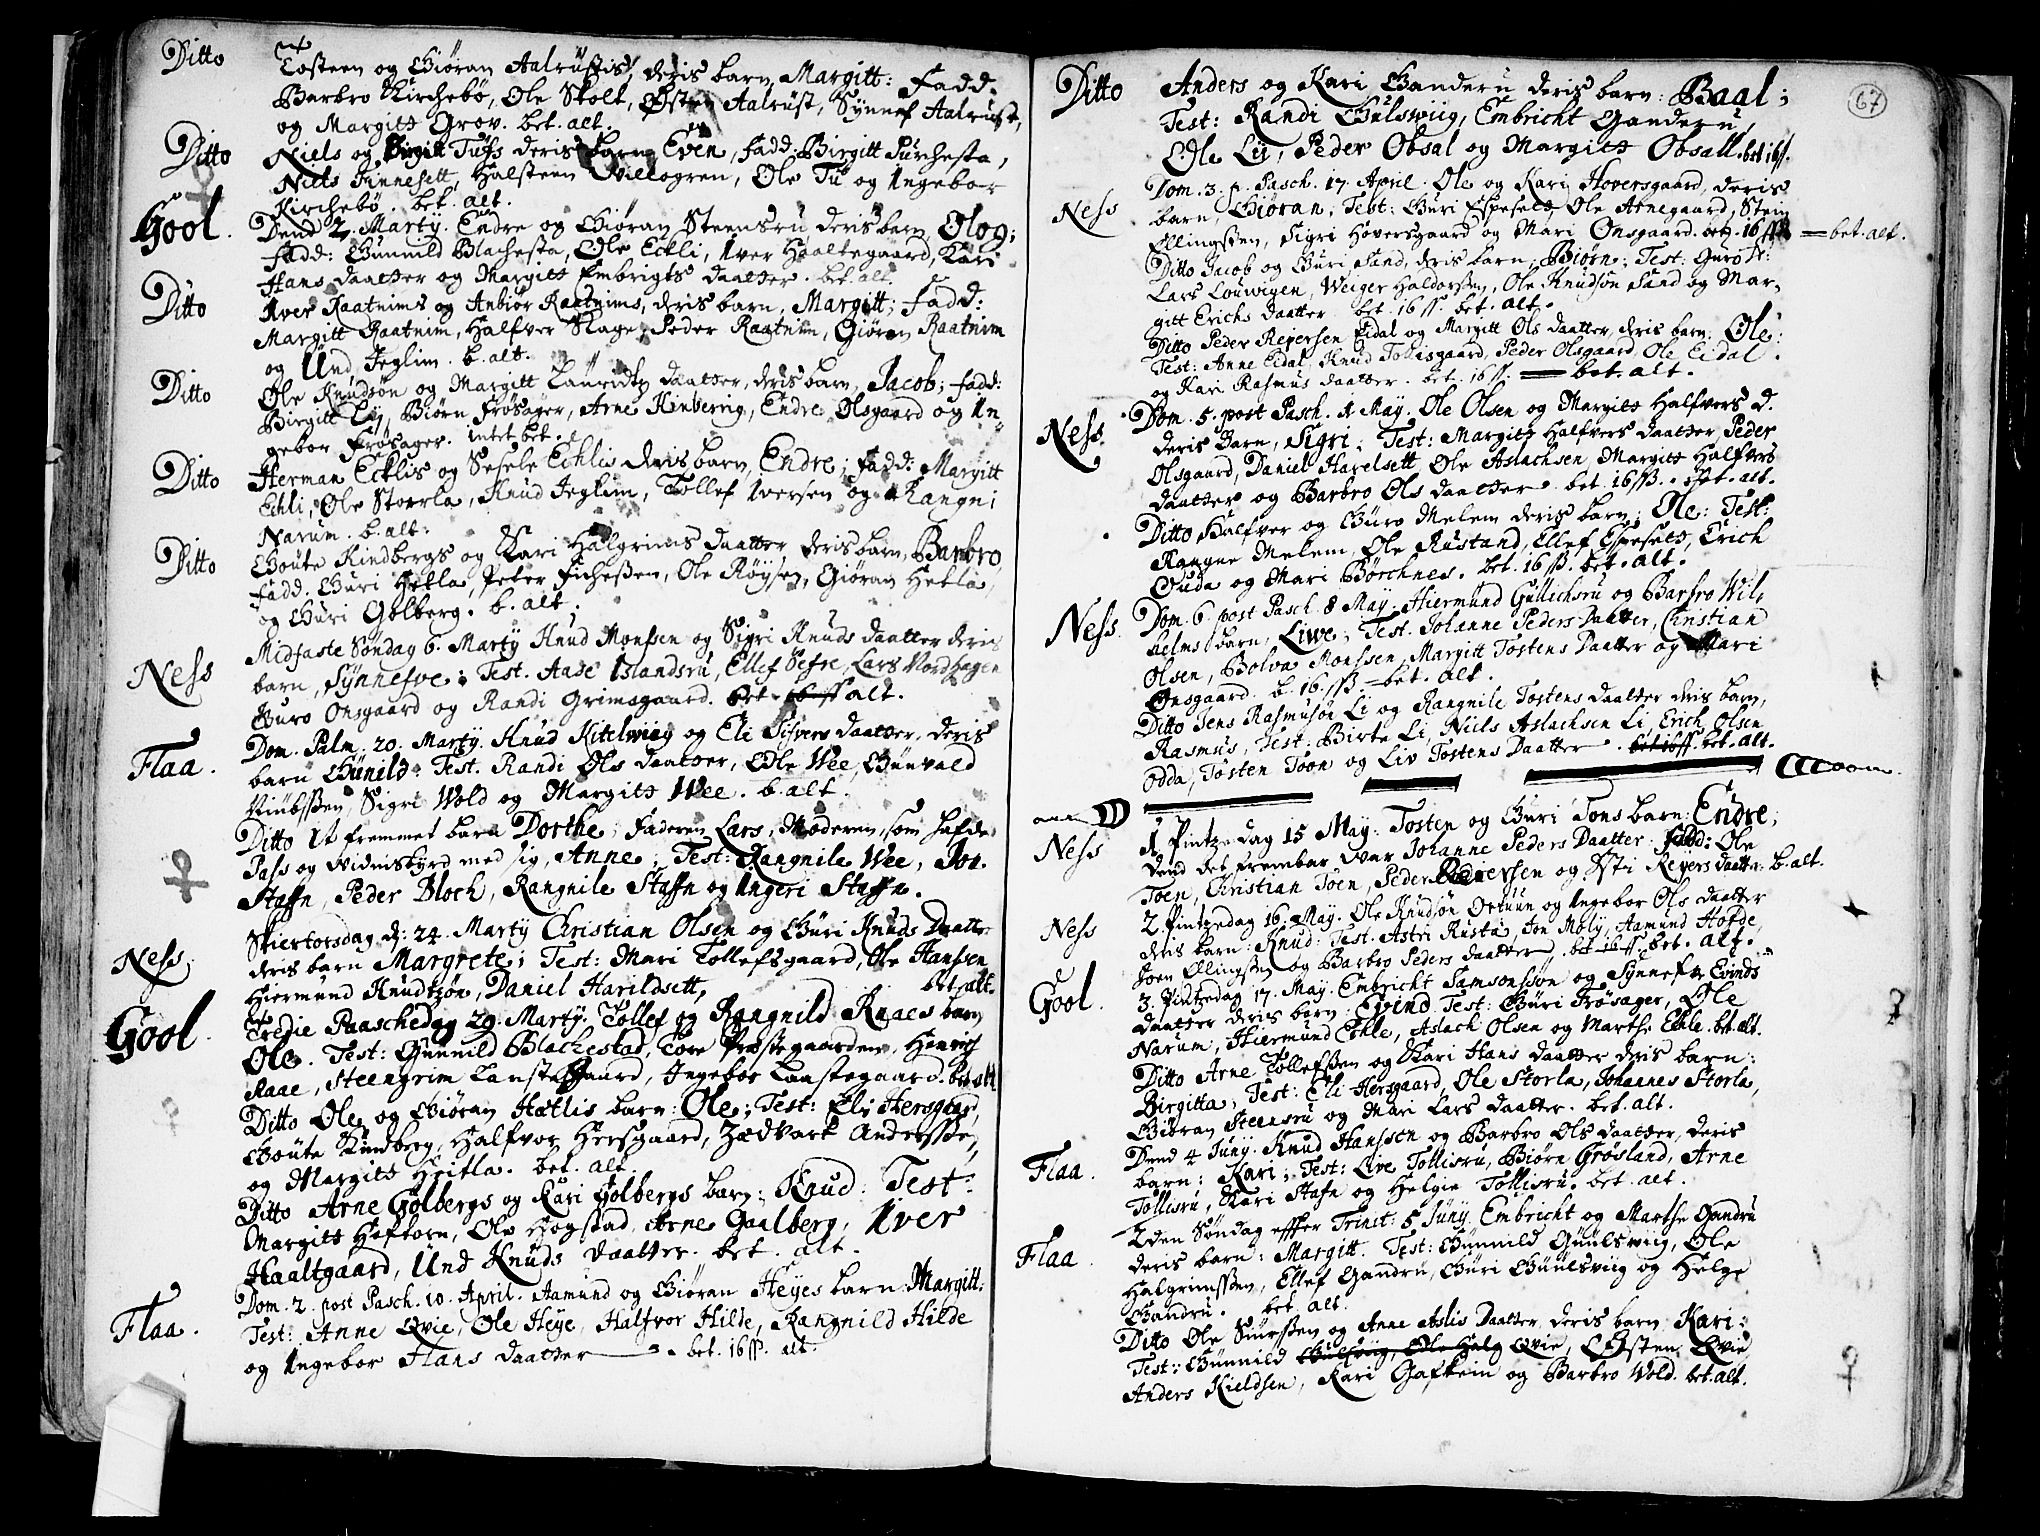 Ditto Tosteen og Giøran Aalrustis, deris barn, Margitt: Fadd.
Barbro Kirchebø, Ole Skolt, Østen Aalrust, Synnef Aalrust,
og Margitt Grov. bet. alt.
Ditto Niels og Birgitt Tufs deris barn Even, fadd. Birgitt Purchesta,
Niels Finnesett, Halsteen Villogren, Ole Tu og Ingebor
Kirchebø. bet. alt.
Gool. Dend 2. Martÿ. Endre og Giøran Steensru deris barn, Olog;
fadd: Gunnild Blachesta, Ole Eckli, Iver Haaltegaard, Kari
Hans daatter og Margitt Embrigts daatter. bet. alt.
Ditto Iver Raatnims og Anbiør Raatnims, deris barn, Margitt; Fadd:
Margitt Raatnim, Halfver Slage, Peder Raatnim, Giøren Raatnim
og Und Jeglim. b. alt.
Ditto Ole Knudsøn og Margitt Lauridtz daatter, deris barn, Jacob; fadd:
Birgitt Ly, Biørn Frøsager, Arne Kinberrig, Endre Olsgaard og In,
gebor Frøsager. intet bet.
Ditto Herman Ecklis og Sesele Echlis deris barn, Endre; fadd: Margitt
Echli, Ole Storrla, Knud Jeglim, Tollef Iversen og Rangni
Narum. b. alt.
Ditto Goute Kindbergs og Kari Halgrims daatter deris barn, Barbro
fadd. Guri Hetla, Peter Ficheßen, Ole Røysen, Giøran Hetla,
og Guri Golberg. b. alt.
Ness Midfaste Søndag 6. Martÿ Knud Monsen og Sigri Knuds daatter deris
barn, Sÿnnefve; Test. Aase Islandsru, Ellef Sefre, Lars Nordhagen
Guro Onsgaard og Randi Grimsgaard. bet. 16 ss alt.
Flaa. Dom. Palm. 20. Martÿ. Knud Kitelwiig og Eli Sifvers daatter. deris
barn Gunild. Test. Randi Ols daatter, Ole Wee, Gunvald
Sigri Wold og Margitt Wee. b. alt.
Ditto It fremmet barn Dorthe; Faderen Lars, Moderen, som hafde
Pass og vidnisbyrd med sig, Anne; Test: Rangnile Wee, Jon
Staffn, Peder Bloch, Rangnile Staffn og Ingeri Staffn.
Ness. Skiertorsdag d: 24. Martÿ Christian Olsen og Guri Knuds Daatter
deris barn Margrete; Test: Mari Tollefsgaard, Ole Hanssen
Hiermund Knudtzøn, Daniel Harildsett, bet. alt.
Gool Tredie Paaschedag 29. Martÿ. Tollef og Rangnild Ruaes barn
Ole. Test: Gunnild Blachestad, Tore Præstegaarden, Henrich
Raae, Steengrim Lanstegaard, Ingebor Laastegaard. bet. alt
Ditto Ole og Giøran Hætlis barn: Ole; Test: Eli Hersgaar,
Goute Kindberg, Halfvor Hersgaard, Andersøn,
og Margitt Heitla. bet. alt.
Ditto Arne Golbergs og Kari Golbergs barn: Knud: Test:
Margitt Haftorn, Ole Høgstad, Arne Gaalberg, Iver
Haaltgaard, Und Knuds daatter. bet. alt.
Flaa. Dom. 2. post Pasch. 10. April. Aamund og Giøran Heyes barn: Margitt:
Test: Anne Qvie, Ole Heye, Halfvor Hilde, Rangnild Hilde
og Ingebor Hans daatter. bet. 16 ss. alt.
67
Ditto Anders og Kari Ganderu deris barn: Baal;
Test: Randi Gulswiig, Embricht Ganderu,
Ole Lii, Peder Obsal og Margitt Obsall. bet 16 ss.
Ness Dom. 3. p. Pasch. 17. April. Ole og Kari Hoversgaard, deris
barn, Giøran; Test: Guri Espesett, Ole Arnegaard, Stein
Ellingssen, Sigri Hoversgaard og Mari Onsgaard. bet. 16 ss = bet. alt.
Ditto Jacob og Guri Sand, deris barn; Biørn; Test: Guro
Lars Louwigen, Weiger Haldorssen, Ole Knudsøn Sand og Mar,
gitt Erichs daatter. bet 16 ss. bet. alt.
Ditto Peder Reiersen Eidal og Margitt Ols daatter, deris barn: Ole:
Test: Anne Eidal, Knud Tollisgaard, Peder Olsgaard, Ole Eidal
og Kari Rasmus daatter. bet. 16 ss. = bet. alt.
Ness. Dom. 5. post Pasch. 1. May. Ole Olsen og Margitt Halfvers d.
deris Barn, Sigri; Test: Margitt Halfvers daatter, Peder
Olsgaard, Daniel Harelsett, Ole Aslachsen, Margitt Halfvers
daatter og Barbro Ols daatter. bet. 16 ss. bet. alt.
Ditto Halfver og Guro Melem deris barn; Ole: Test:
Rangne Melem, Ole Rustand, Ellef Espesett, Erich
Ouda og Mari Børchnes. bet. 16 ss. bet. alt.
Ness. Dom. 6. post Pasch. 8 May. Hiermund Gullichsru og Barbro Wil,
helms barn, Liwe; Test. Johanne Peders Daatter, Christian
Olsen, Bolva Monssen, Margitt Tostens Daatter og Mari
Onsgaard. b. 16. ss. = bet. alt.
Ditto Jens Rasmusøn Li og Rangnile Tostens daatter deris barn,
Rasmus, Test: Birte Li, Niels Aslachsen Li, Erich Olsen
Odda, Tosten Toen og Liv Tostens Daatter. bet 16 ss. bet. alt.
Ness 1. Pintzedag 15 May. Tosten og Guri Tons barn: Endre;
Dend det frembar var Johanne Peders Daatter. fadd: Ole
Toen, Christian Toen, Peder Reiersen og Asti Reyers daatter. b. alt.
Ness 2. Pintzedag 16. May. Ole Knudsøn Ortuun og Ingebor Ols daatter
deris barn: Knud: Test. Astri Rusta, Jon Moly, Aamund Hofde,
Joen Elingssen og Barbro Peders daatter. bet 16 ss. bet. alt.
Gool. 3. Pintzedag 17. May. Embricht Samsonsøn og Sÿnnefve Evinds
daatter deris barn: Evind. Test: Guri Frøsager, Ole
Narum, Hiermund Echle, Aslach Olsen og Marthe Echle. bet. alt.
Ditto Arne Tollefssen og Kari Hans daatter deris barn:
Birgitta; Test: Eli Hersgaard, Ole Storla, Johannes Storla,
Giøran Steensru og Mari Lars daatter. bet. alt.
Flaa. Dend 4 Juny. Knud Hanssen og Barbro Ols daatter, deris
barn: Kari; Test: Live Tollisru, Biørn Grøsland, Arne
Tollisru, Kari Stafn og Helgie Tollisru. bet. alt.
Flaa. 1den Søndag effter Trinit: 5 Juny. Embricht og Marthe Gandru
deris barn: Margitt. Test: Gunnild Guulswiig, Ole
Halgrimssen, Ellef Gandru, Guri Guulsviig og Helge
Gandru. bet. alt.
Ditto Ole Siurssen og Anne Aslis Daatter deris barn Kari:
Test: Gunnild Gulsviig, Ole Halg Qvie, Østen Qvie
Anders Kieldsen, Kari Gafkein og Barbro Wold. bet. alt.